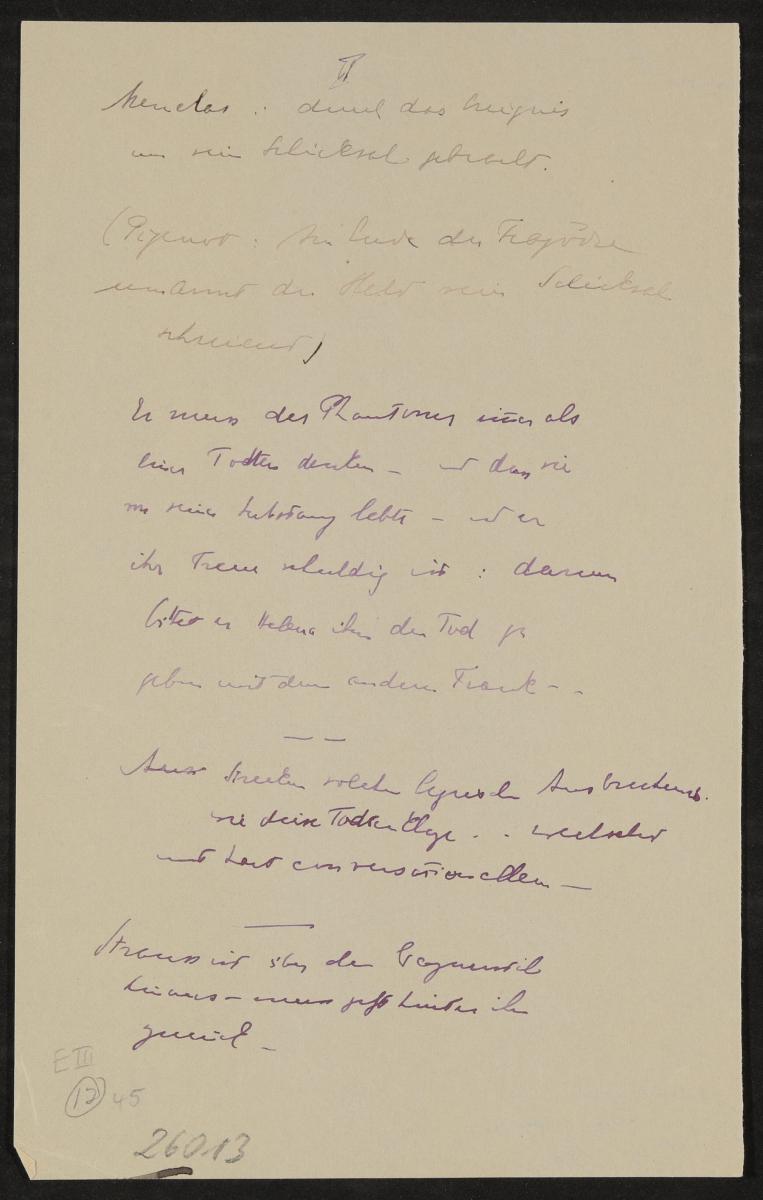 II
Menelas : durch das Ereignis
um sein Schicksal gebracht.
(Pigenot : Am Ende der Tragödie
umarmt der Held sein Schicksal
schreiend)
Er muss des Phantomes immer als
einer Todten denken – und dass sie
von seiner Substanz lebte – und er
ihr Treue schuldig ist : darum
bittet er Helena ihm den Tod zu
geben mit dem anderen Trank – .
— —
solcher lyrischen Ausbrüche
wie diese Todtenklage . . wechselnd
mit fast conversationellem —
Strauss ist über den Wagnerstil
hinaus – muss jetzt hinter ihn
zurück –
E III
12 45
26013